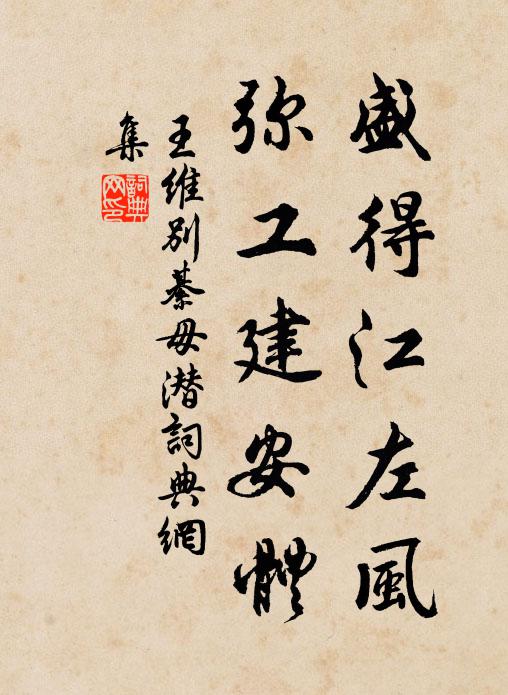 盛得江左風
弥工建安體
王維别綦毋潜詞典網
集
詞典
网印